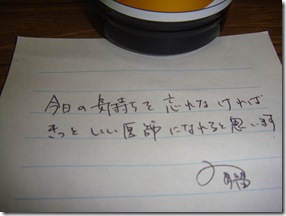 今日の気持ちを忘れなければ
きっといい医師になれると思います